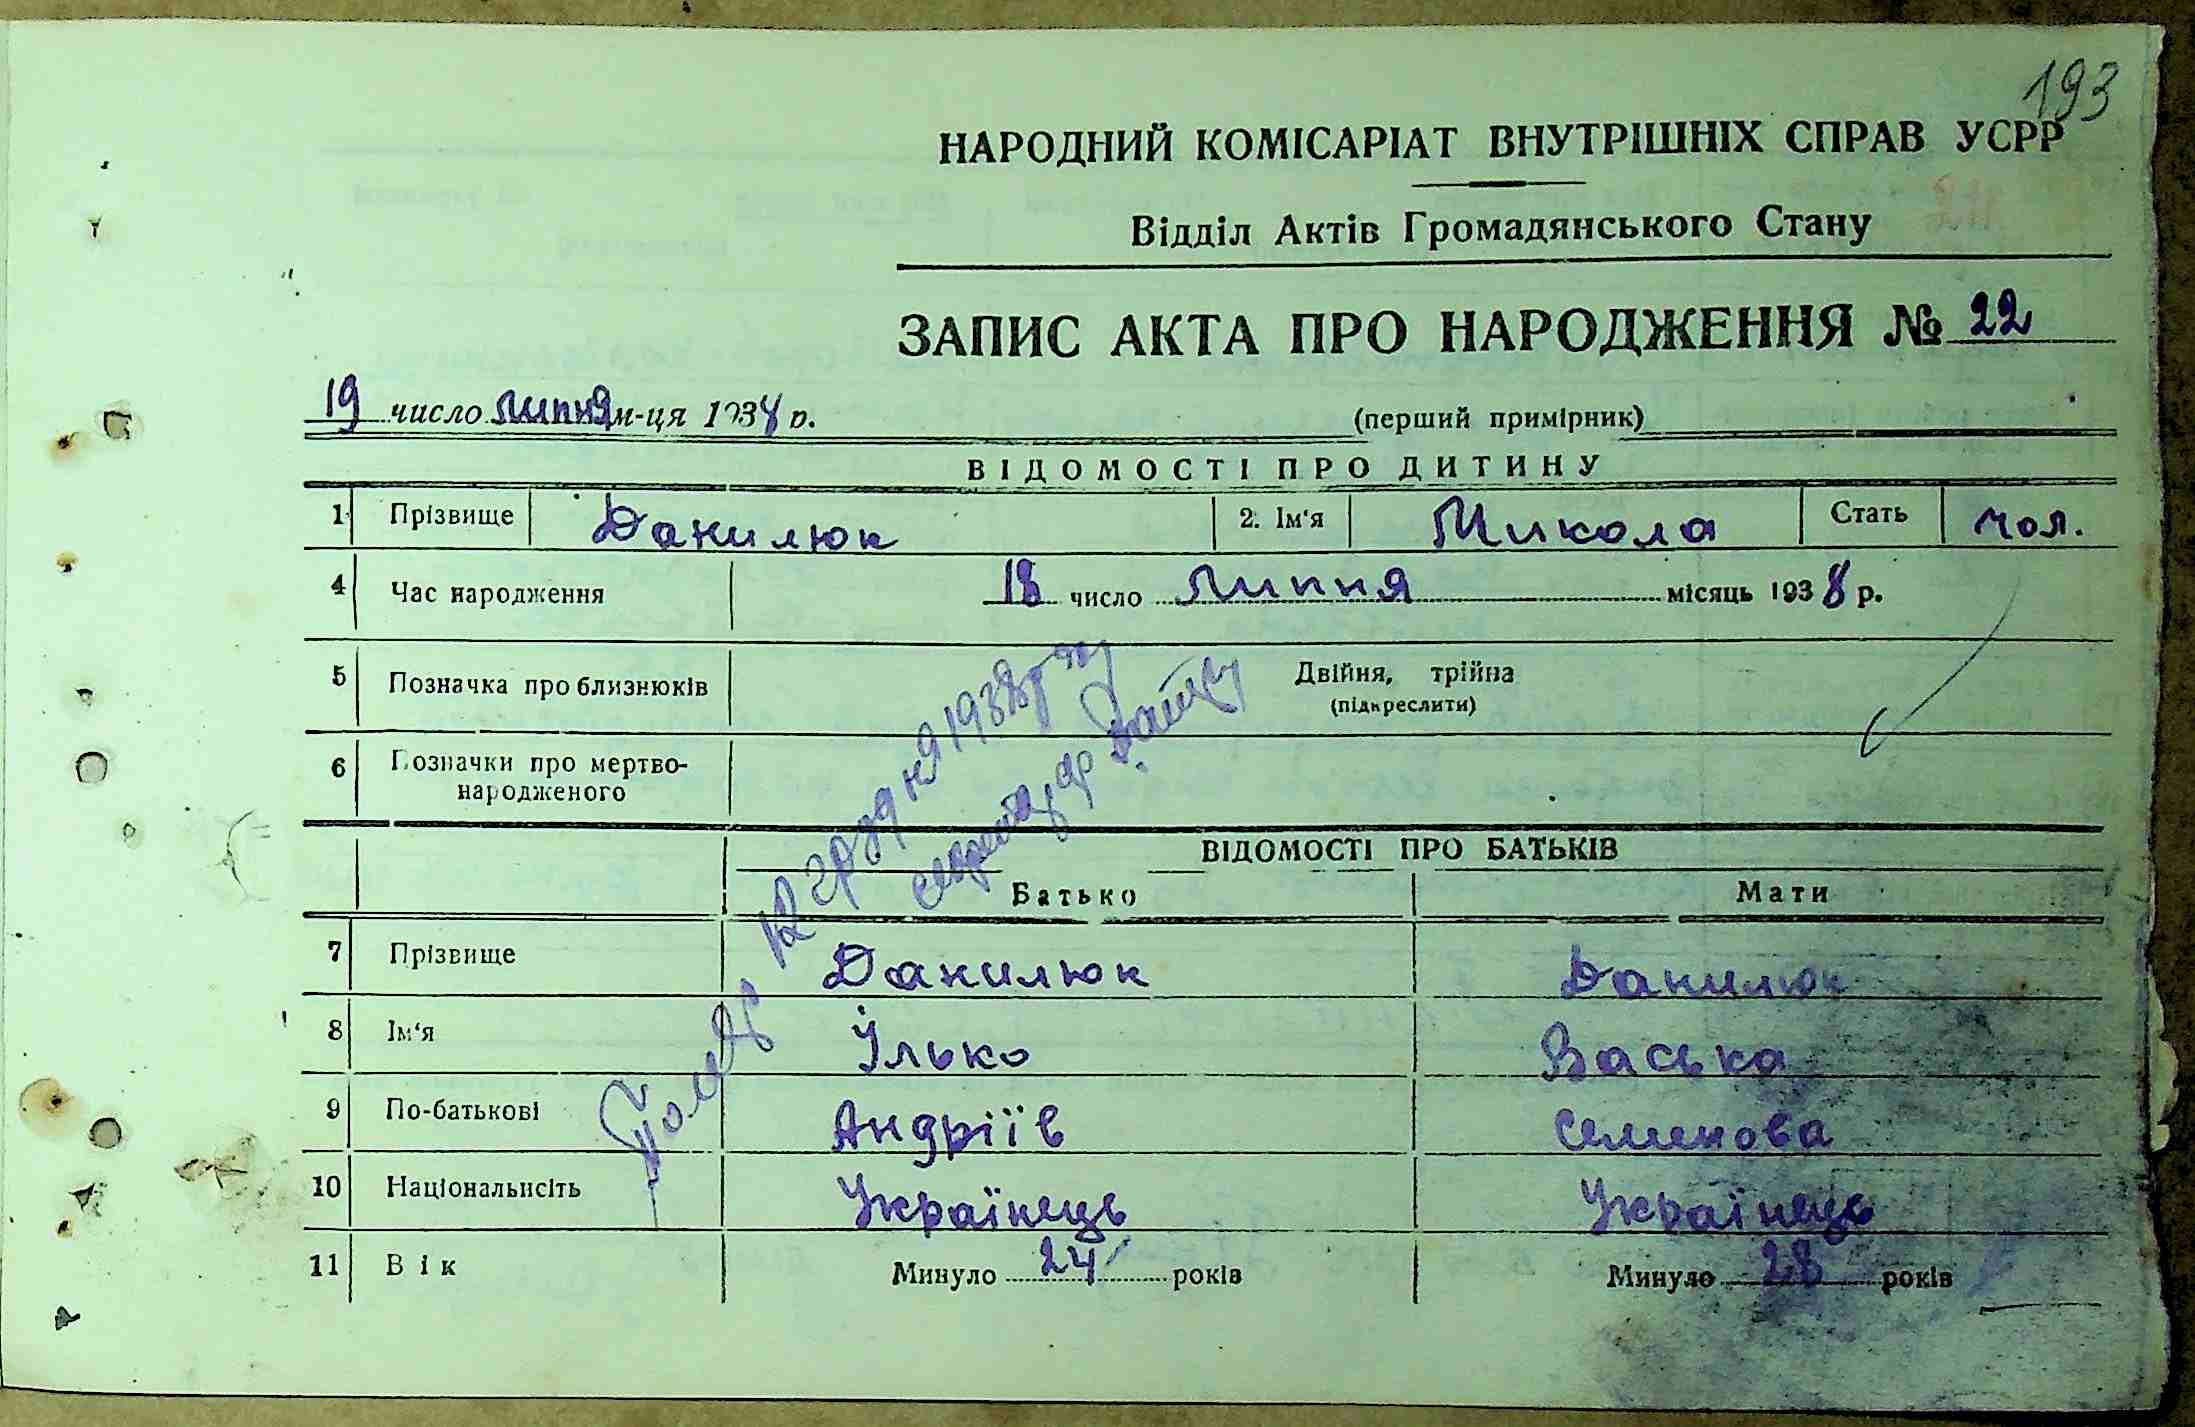 193
НАРОДНИЙ КОМІСАРІАТ ВНУТРІШНІХ СПРАВ УСРР
Відділ Актів Громадянського Стану
ЗАПИС АКТА ПРО НАРОДЖЕННЯ № 22
19 число липня м-ця 1938 р. (перший примірник)
ВІДОМОСТІ ПРО ДИТИНУ
1 Прізвище Данилюк 2. Ім'я Микола Стать чол.
4 Час народження 18 число липня місяць 1938 р.
5 Позначка про близнюків Двійня, трійна
(підкреслити)
6 Позначки про мертво-
народженого
Помер 12 грудня 1938 р
секретар
ВІДОМОСТІ ПРО БАТЬКІВ
Батько Мати
7 Прізвище Данилюк Данилюк
8 Ім'я Ілько Васька
9 По-батькові Андріїв Семенова
10 Національність Українець Українець
11 Вік Минуло 24 років Минуло 28 років